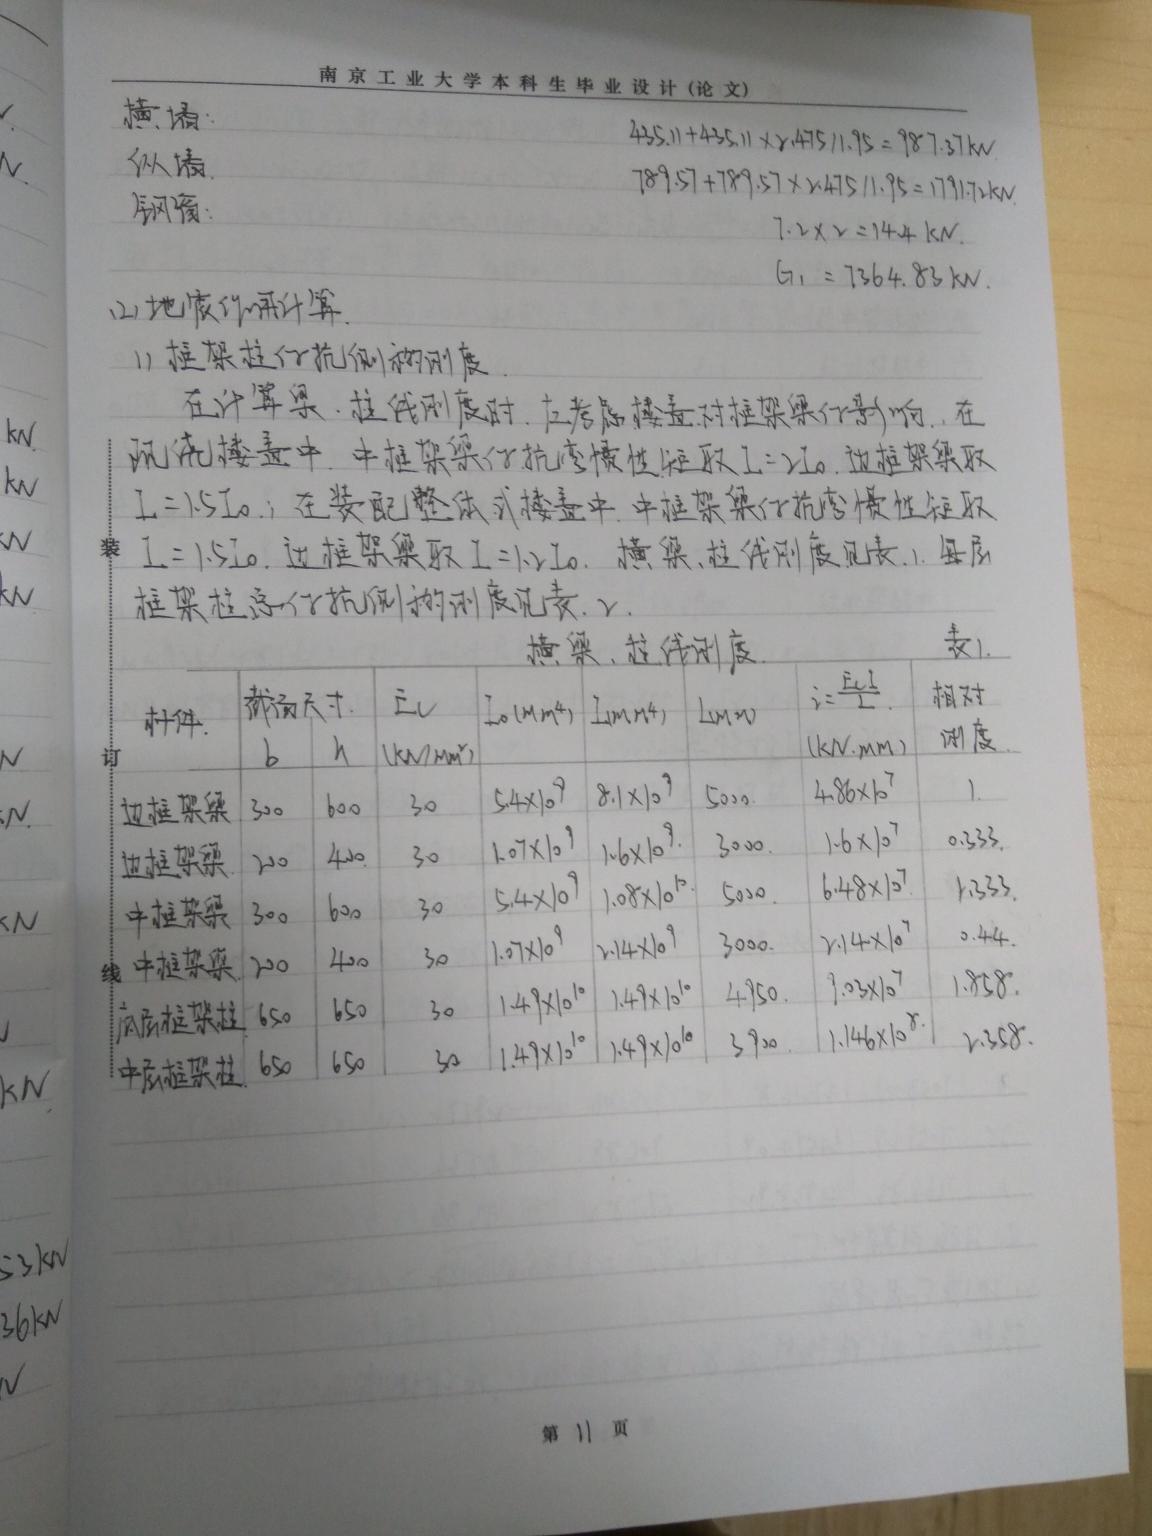 南京工业大学本科生毕业设计(论文)
横墙: 435.11+435.11×2.475/1.95=987.37kN
纵墙. 789.57+789.57×2.475/1.95=1791.72kN.
钢窗: 7.2×2=14.4kN.
G₁=7364.83kN.
(2)地震作用计算.
1)框架柱的抗侧移刚度.
在计算梁、柱线刚度时.应考虑楼盖对框架梁的影响.在
现浇楼盖中.中框架梁的抗弯惯性矩取I=2I₀.边框架梁取
I=1.5I₀.;在装配整体式楼盖中.中框架梁的抗弯惯性矩取
I=1.5I₀.边框架梁取I=1.2I₀.横梁、柱线刚度见表.1.每层
框架柱总的抗侧移刚度见表.2.
横梁、柱线刚度. 表1.
杆件. 截面尺寸. Ec I₀(mm⁴) I(mm⁴) L(mm) i=EcI/L 相对
b h (kN/mm²) (kN.mm) 刚度.
边框架梁 300 600 30 5.4×10⁹ 8.1×10⁹ 5000. 4.86×10⁷ 1.
边框架梁 200 400. 30 1.07×10⁹ 1.6×10⁹. 3000. 1.6×10⁷ 0.333.
中框架梁 300 600 30 5.4×10⁹ 1.08×10¹⁰. 5000. 6.48×10⁷. 1.333.
中框架梁. 200 400 30 1.07×10⁹ 2.14×10⁹ 3000. 2.14×10⁷ 0.44.
底层框架柱 650 650 30 1.49×10¹⁰ 1.49×10¹⁰ 4950. 9.03×10⁷ 1.858.
中层框架柱. 650 650 30 1.49×10¹⁰ 1.49×10¹⁰ 3900. 1.146×10⁸. 2.358.
装
订
线
第 11 页
kN
kN
kN
kN
kN.
kN
kN
53kN
36kN